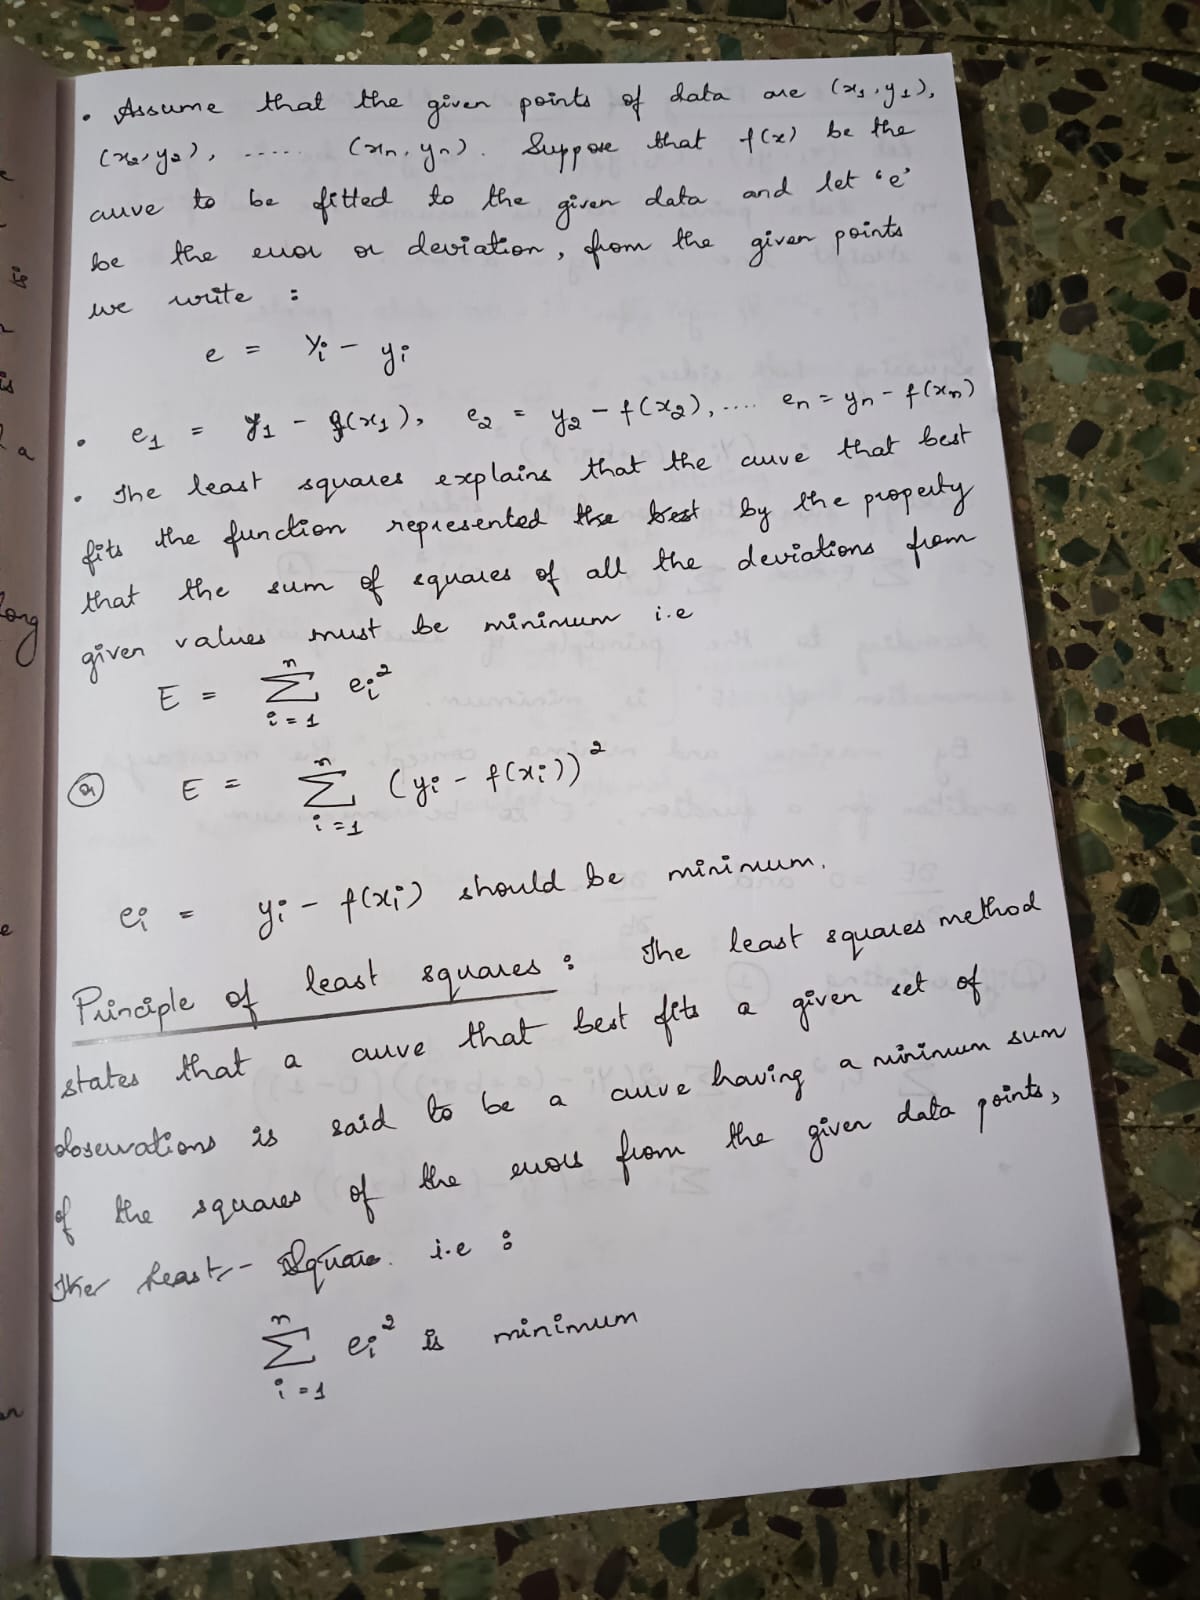 • Assume that the given points of data are (x₁, y₁),
(x₂, y₂), ..... (xₙ, yₙ). Suppose that f(x) be the
curve to be fitted to the given data and let 'e'
be the error or deviation, from the given points
we write :
e = Yᵢ - yᵢ
• e₁ = y₁ - f(x₁), e₂ = y₂ - f(x₂), .... eₙ = yₙ - f(xₙ)
• The least squares explains that the curve that best
fits the function represented the best by the property
that the sum of squares of all the deviations from
given values must be minimum i.e
E = Σ_{i=1}^{n} eᵢ²
or E = Σ_{i=1}^{n} (yᵢ - f(xᵢ))²
eᵢ = yᵢ - f(xᵢ) should be minimum.
Principle of least squares : The least squares method
states that a curve that best fits a given set of
observations is said to be a curve having a minimum sum
of the squares of the errors from the given data points,
The Least - Square. i.e :
Σ_{i=1}^{n} eᵢ² is minimum
is
is
a
long